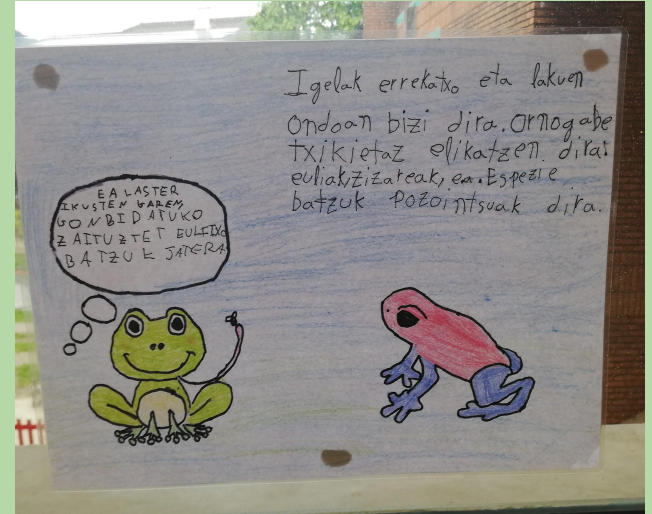 Igelak errekatxo eta lakuen
ondoan bizi dira. Ornogabe
txikietaz elikatzen dira:
euliak, zizareak, ea. Espezie
batzuk pozointsuak dira.
EA LASTER
IKUSTEN GAREN,
GONBIDATUKO
ZAITUZTET EULITXO
BATZUK JATERA